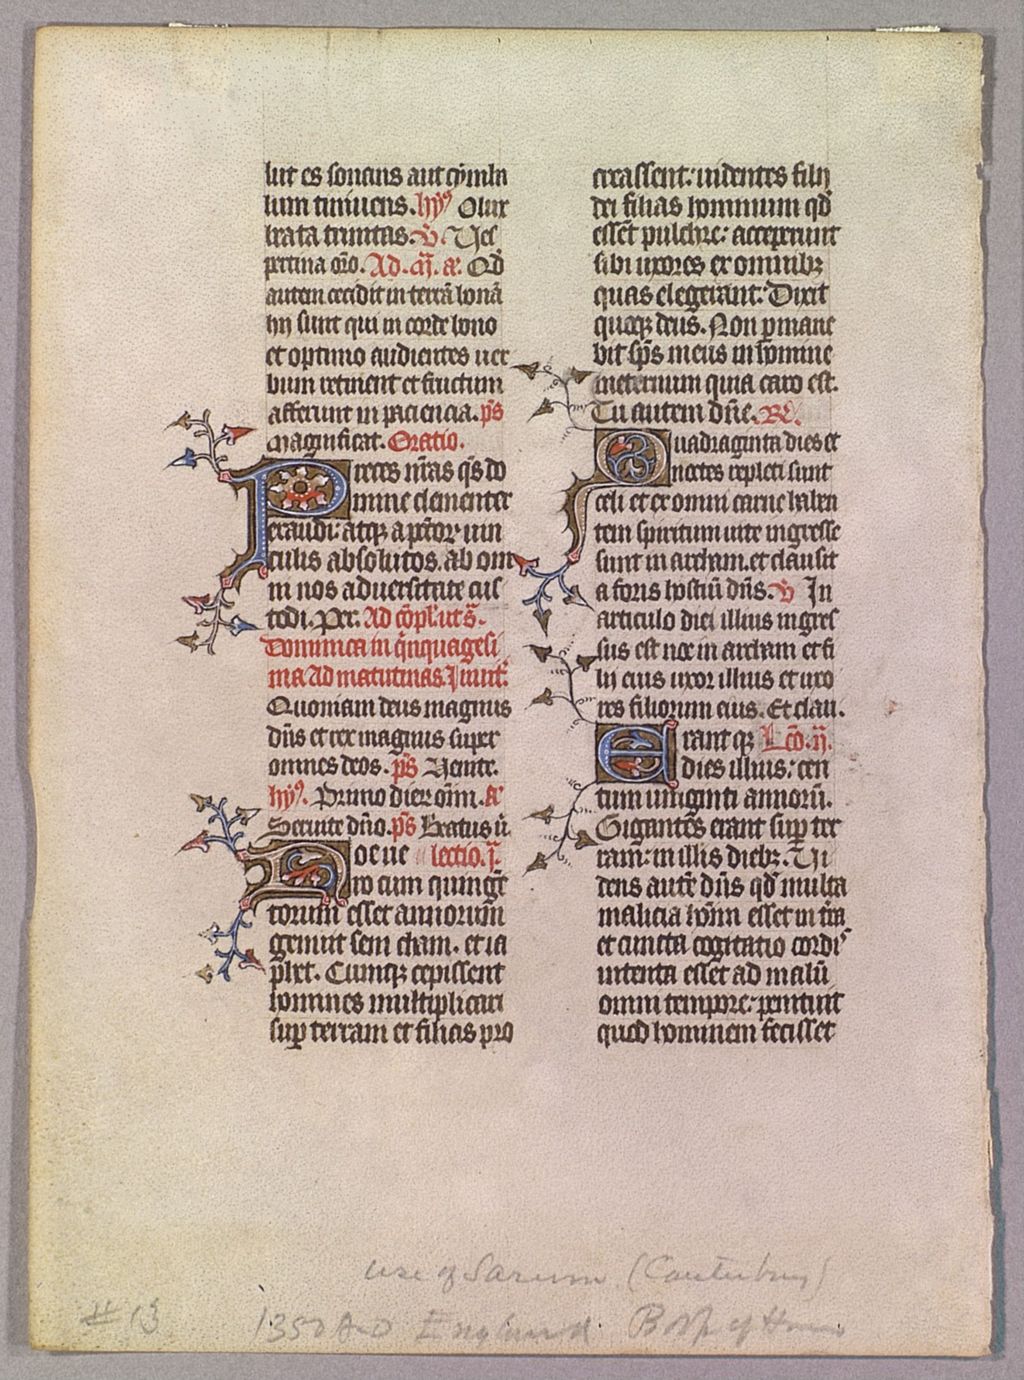 lut es sonans aut cymba
lum tiniuens. hyˀ O lux
beata trinitas. v̄. Ves
pertina or̄o. Ad. m̄. a. Qd̄
autem cecidit in terrā bonā
hij sunt qui in corde bono
et optimo audientes uer
bum retinent et fructum
afferunt in paciencia. ps̄
Magnificat. Oratio.
Preces nr̄as qs̄ do
mine clementer
exaudi: atqꝫ a pctōꝝ uin
culis absolutos. ab om
ni nos aduersitate cus
todi. Per. Ad cōpl. ut s̄.
Dominica in q̄nquagesi
ma Ad matutinas. Inuit̄.
Quoniam deus magnus
dn̄s et rex magnus super
omnes deos. ps̄ Venite.
hyˀ. Primo dierꝝ om̄. a
Seruite dn̄o. ps̄ Beatus ū.
Noe ue lectio. j.
ro cum quinge̅
torum esset annorum
genuit sem cham. et ia
phet. Cumqꝫ cepissent
homines multiplicari
suꝑ terram et filias pro
creassent: uidentes filij
dei filias hominum qd̄
essēt pulchre: acceperunt
sibi uxores ex omnibꝫ
quas elegerant. Dixit
quoqꝫ deus. Non ꝑmane
bit sp̄s meus in homine
ineternum quia caro est.
Tu autem dn̄e. R̄.
Quadraginta dies et
noctes repleti sunt
celi et ex omni carne haben
tem spiritum uite ingresse
sunt in archam. et clausit
a foris hostiū dn̄s. v̄ In
articulo diei illius ingres
sus est noe in archam et fi
lij eius uxor illius et uxo
res filiorum eius. Et clau.
Erant qꝫ Lc̄o. ij.
dies illius: cen
tum uiginti annorū.
Gigantes erant suꝑ ter
ram: in illis diebꝫ. Vi
dens autē dn̄s qd̄ multa
malicia hōm̄ esset in tr̄a
et cuncta cogitatio cordis
intenta esset ad malū
omni tempore: penituit
quod hominem fecisset
use of Sarum (Canterbury)
#13 1350 A-D England Book of Hours